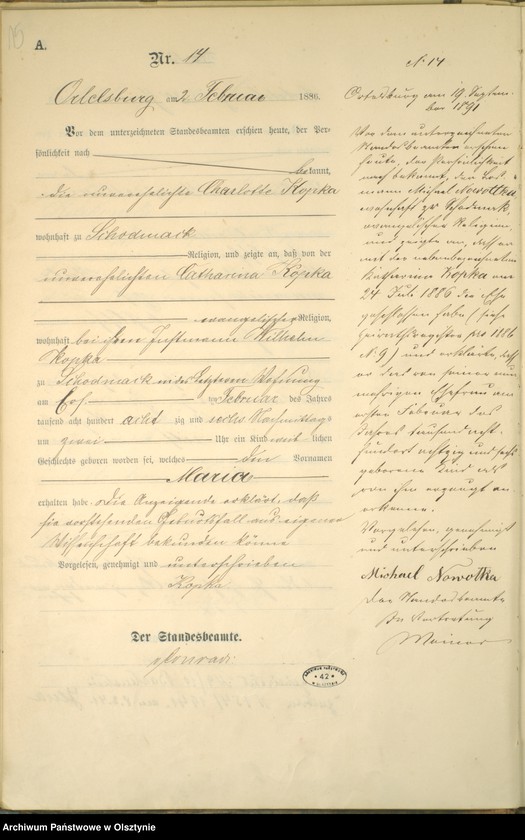 A.
Nr. 14
Ortelsburg am 2. Februar 1886.
Vor dem unterzeichneten Standesbeamten erschien heute, der Per-
sönlichkeit nach
bekannt,
die unverehelichte Charlotte Kopka
wohnhaft zu Schodmack
Religion, und zeigte an, daß von der
unverehelichten Catharina Kopka
evangelischer Religion,
wohnhaft bei ihrem Wilhelm
Kopka
zu Schodmack in des Letzteren Wohnung
am ersten Februar des Jahres
tausend acht hundert acht zig und sechs Nachmittags
um zwei Uhr ein Kind weib lichen
Geschlechts geboren worden sei, welches den Vornamen
Maria
erhalten habe. Die Anzeigende erklärt, daß
sie vorstehenden Geburtsfall aus eigener
Wissenschaft bekunden könne
Vorgelesen, genehmigt und unterschrieben
Kopka
Der Standesbeamte.
N. 14
Ortelsburg am 19. Septem-
ber 1891
Vor dem unterzeichneten
Standesbeamten erschien
heute, der Persönlichkeit
nach bekannt, der
mann Michael Nowottka
wohnhaft zu Schodmack,
evangelischer Religion,
und zeigte an, daß er
mit der nebenbezeichneten
Katharina Kopka am
24 Juli 1886 die Ehe
geschlossen habe (siehe
Heirathsregister pro 1886
N. 9) und erklärte, daß
er das von seiner nun-
mehrigen Ehefrau am
ersten Februar des
Jahres tausend acht-
hundert achtzig und sechs
geborene Kind als
von ihm erzeugt an-
erkenne.
Vorgelesen, genehmigt
und unterschrieben
Michael Nowottka
Der Standesbeamte
In Vertretung
42
Archiwum Państwowe w Olsztynie